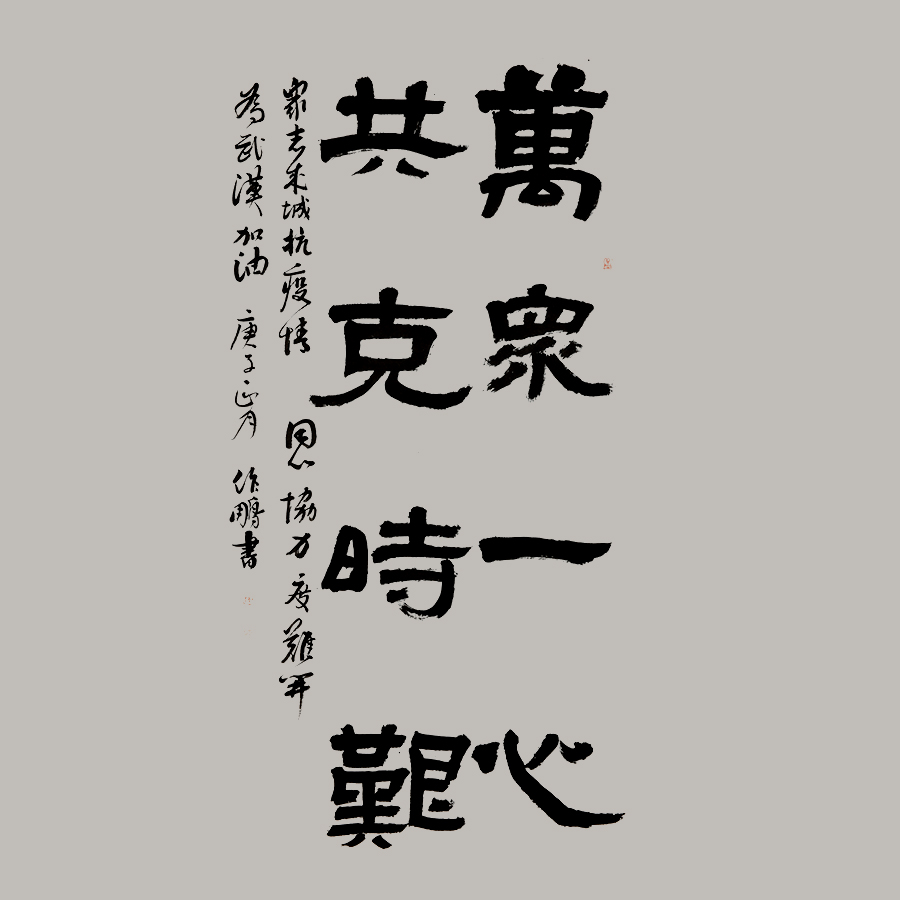 萬眾一心
共克時艱
眾志成城抗疫情 同心協力度難關
為武漢加油 庚子正月 作鵬書